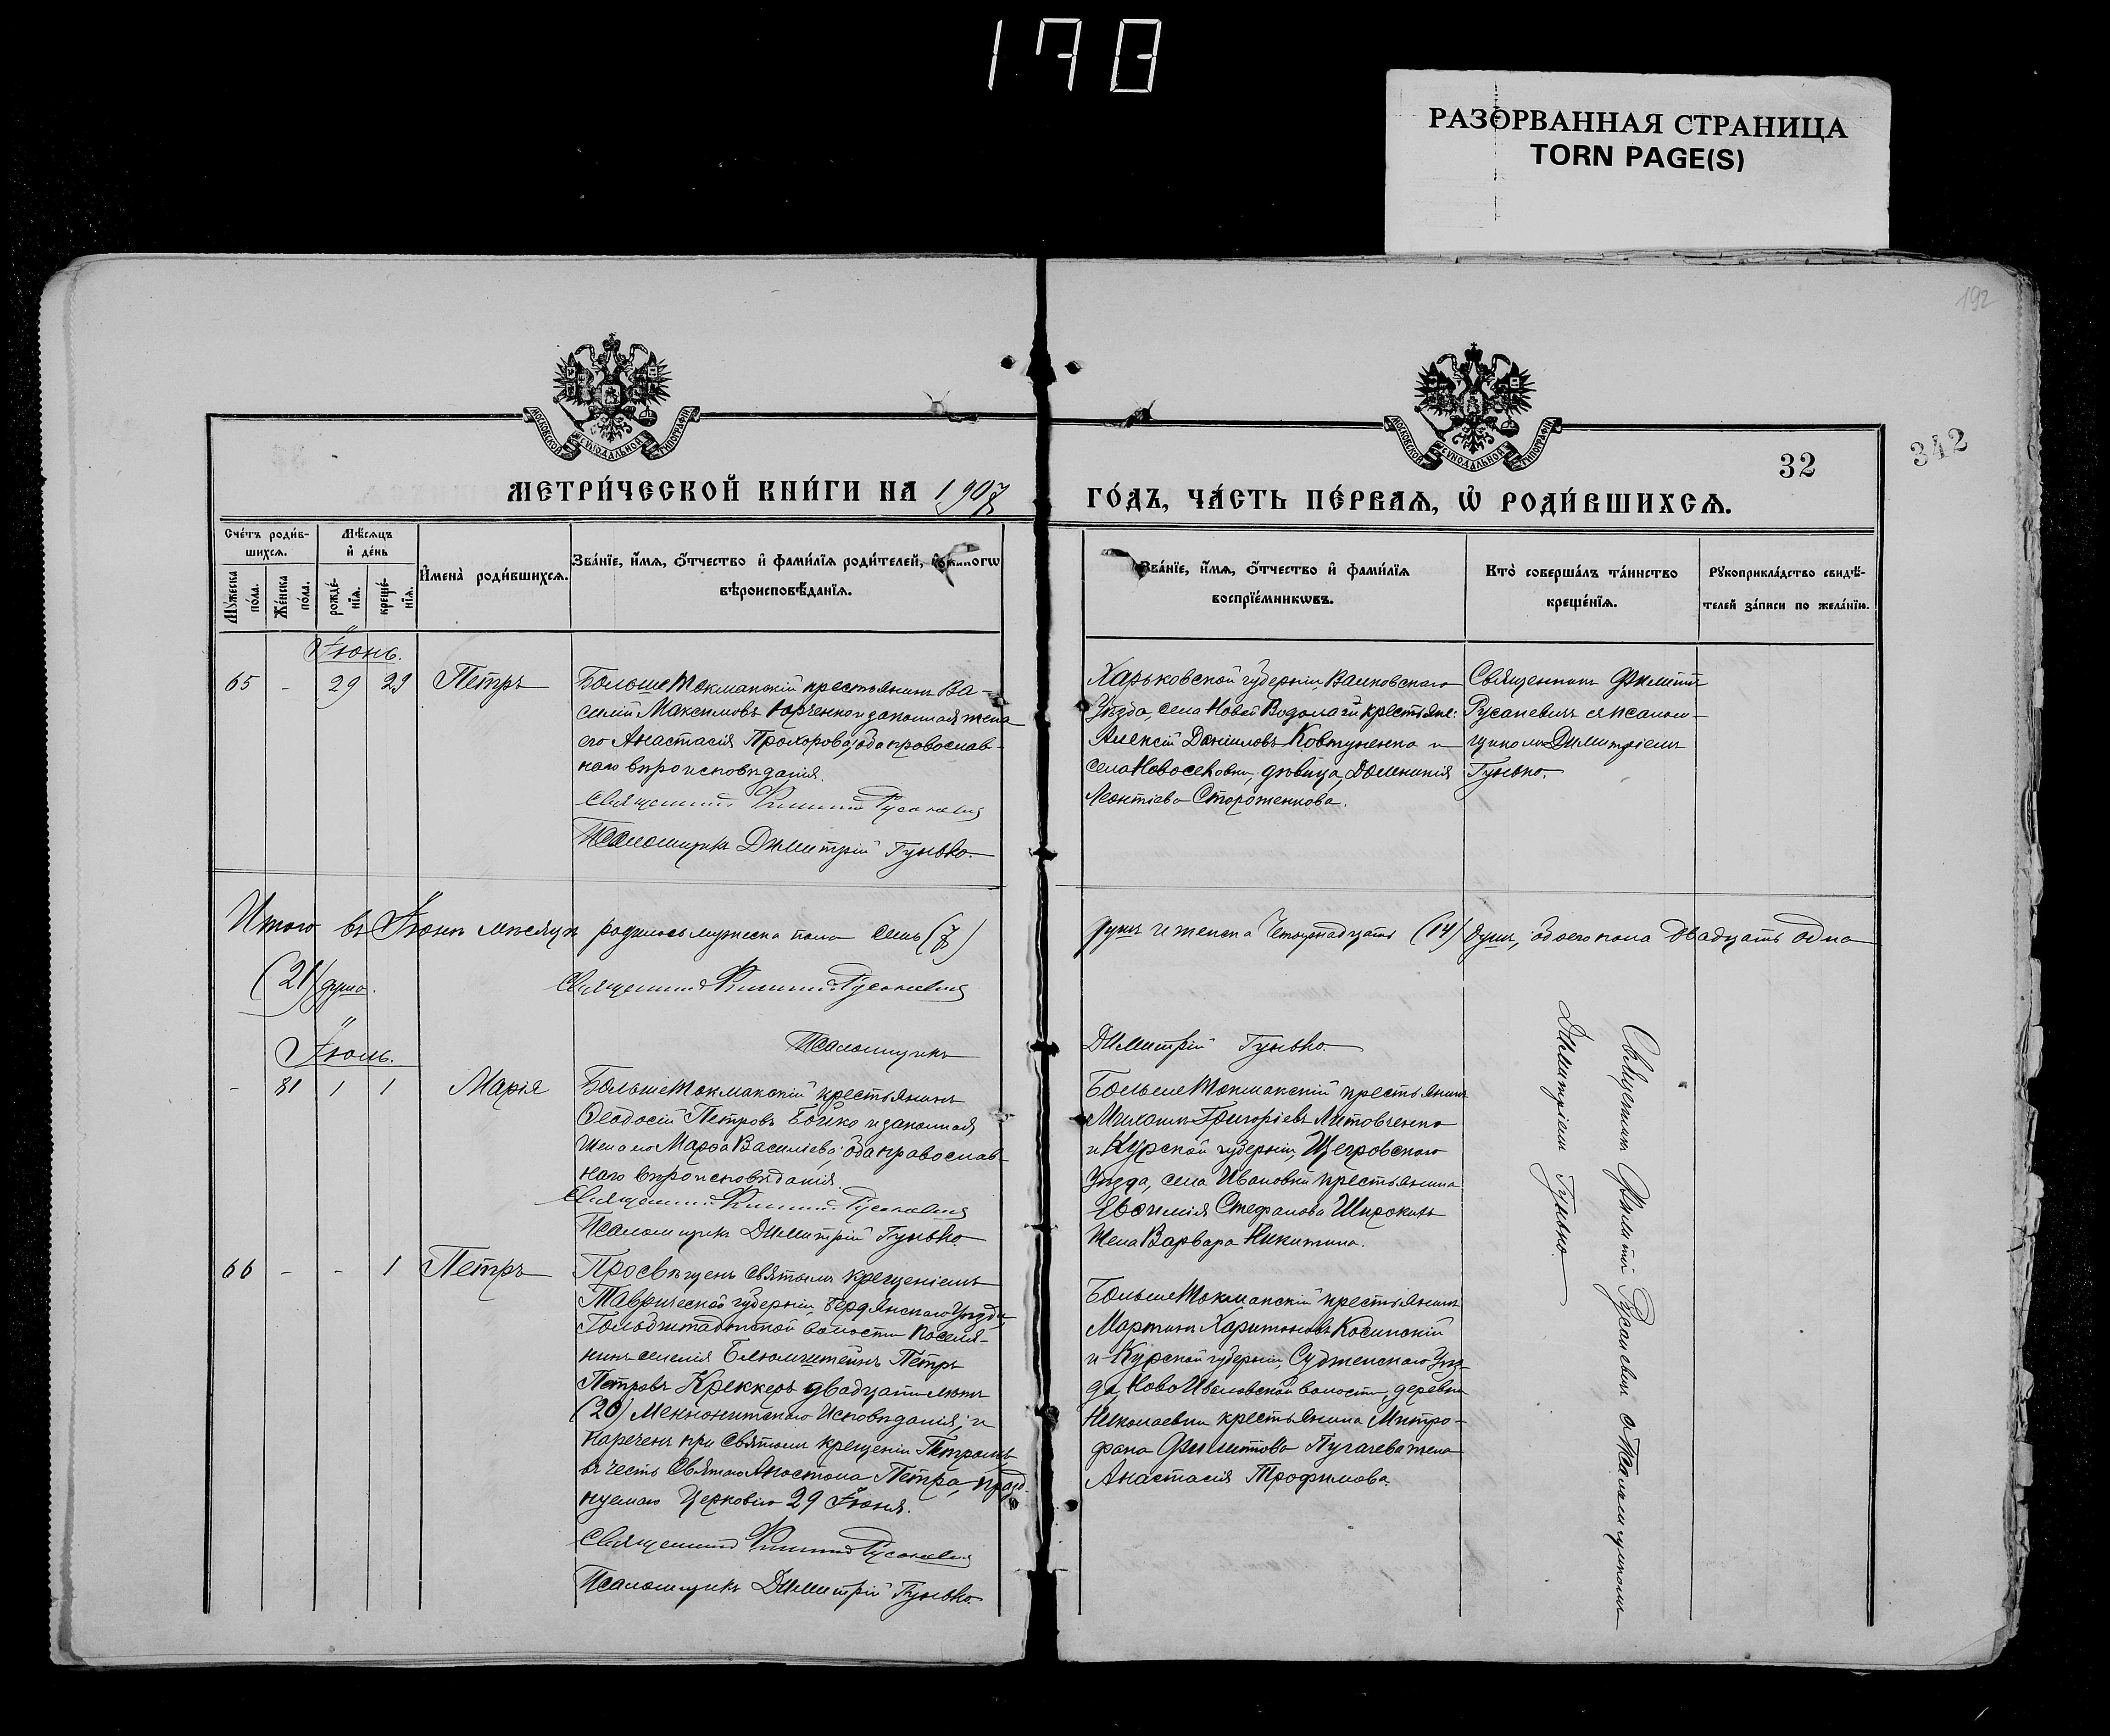 178
РАЗОРВАННАЯ СТРАНИЦА
TORN PAGE(S)
192
МОСКОВСКОЙ СѴНОДАЛЬНОЙ ТИПОГРАФІИ
МОСКОВСКОЙ СѴНОДАЛЬНОЙ ТИПОГРАФІИ
32
342
МЕТРИ́ЧЕСКОЙ КНИ́ГИ НА 1907
ГО́ДЪ, ЧА́СТЬ ПЕ́РВАѦ, Ѡ РОДИ́ВШИХСѦ.
Сче́тъ роди́в-
шихсѧ.
Мѣ́сѧцъ
и҆ де́нь
Му́жеска
по́ла.
Же́нска
по́ла.
рожде́-
нїѧ.
креще́-
нїѧ.
И҆мена̀ роди́вшихсѧ.
Зва́нїе, и҆́мѧ, ѻ҆́тчество и҆ фами́лїѧ роди́телей, и҆
вѣроисповѣ́данїѧ.
Зва́нїе, и҆́мѧ, ѻ҆́тчество и҆ фами́лїѧ
воспрїе́мникѡвъ.
Кто̀ соверша́лъ та́инство
креще́нїѧ.
Рꙋкоприкла́дство свидѣ́-
телей за́писи по жела́нїю.
Іюнь.
65 - 29 29 Петръ
БольшеТокмакскій крестьянинъ Ва-
силій Максимовъ Юрченко и законная жена
его Анастасія Прохорова, оба православ-
наго вѣроисповѣданія.
Священникъ Филиппъ Русаневичъ
Псаломщикъ Димитрій Гунько.
Харьковской губерніи, Валковскаго
Уѣзда, села Новой Водолаги крестьян:
Алексій Даніиловъ Ковтуненко и
села Новоселовки, дѣвица, Домникія
Леонтіева Стороженкова.
Священникъ Филиппъ
Русаневичъ съ псалом-
щикомъ Димитріемъ
Гунько.
Итого въ Іюнѣ мѣсяцѣ родилось мужеска пола семь (7)
душъ и женска четырнадцать (14) душъ, обоего пола двадцать одна
(21) душа.
Священникъ Филиппъ Русаневичъ
Псаломщикъ Димитрій Гунько.
Іюль.
- 81 1 1 Марія
БольшеТокмакскій крестьянинъ
Ѳеодосій Петровъ Бойко и законная
жена его Марѳа Василіева, оба православ-
наго вѣроисповѣданія.
Священникъ Филиппъ Русаневичъ
Псаломщикъ Димитрій Гунько.
БольшеТокмакскій крестьянинъ
Михаилъ Григоріевъ Литовченко
и Курской губерніи, Щегровскаго
Уѣзда, села Ивановки крестьянина
Евѳимія Стефанова Широкихъ
жена Варвара Никитина.
Священникъ Филиппъ Русаневичъ съ Псаломщикомъ
Димитріемъ Гунько.
66 - - 1 Петръ
Просвѣщенъ святымъ крещеніемъ
Таврической губерніи, Бердянскаго Уѣзда,
Гольдштадтской волости поселя-
нинъ селенія Блюмштейнъ Петръ
Петровъ Креккеръ двадцати лѣтъ
(20) Меннонитскаго Исповѣданія, и
нареченъ при святомъ крещеніи Петромъ
въ честь Святаго Апостола Петра, празд-
нуемаго Церковію 29 Іюня.
Священникъ Филиппъ Русаневичъ
Псаломщикъ Димитрій Гунько.
БольшеТокмакскій крестьянинъ
Мартинъ Харитоновъ Косинскій
и Курской губерніи, Судженскаго Уѣз-
да, волости, деревни
Николаевки крестьянина Митро-
фана Филиппова Пугачева жена
Анастасія Трофимова.